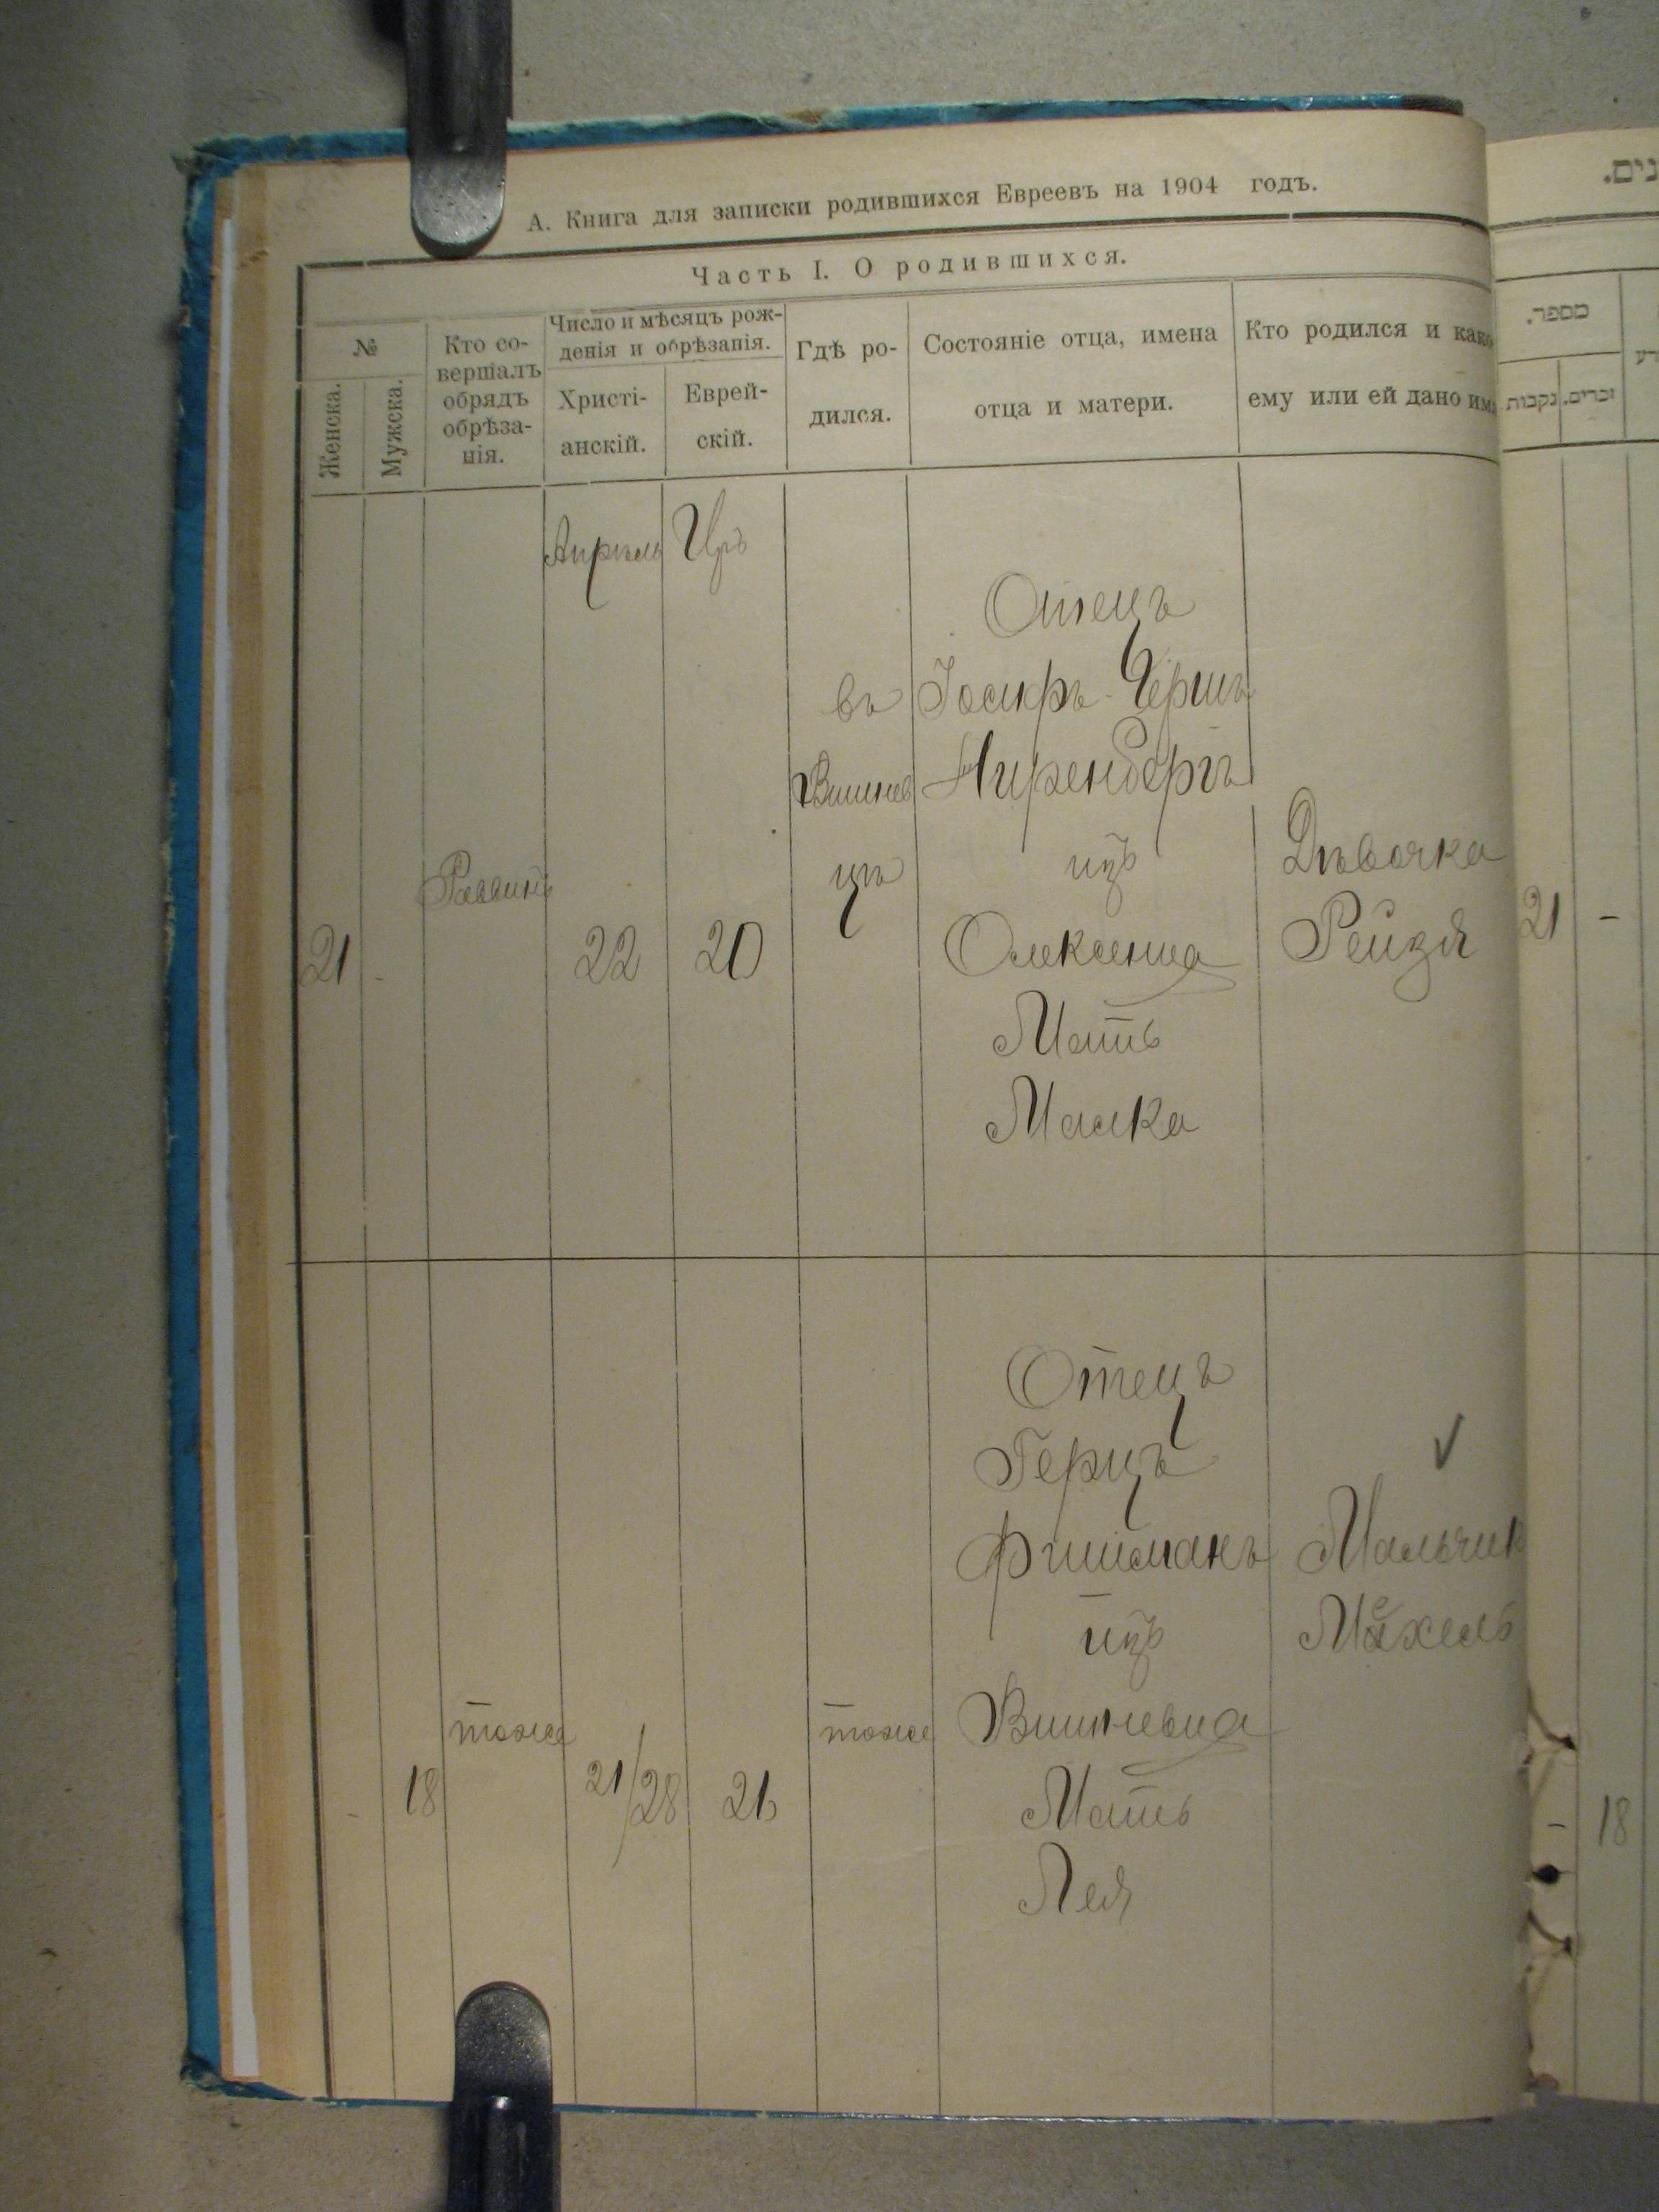 А. Книга для записки родившихся Евреевъ на 1904 годъ.
Часть I. О родившихся.
№
Женска.
Мужска.
Кто со-
вершалъ
обрядъ
обрѣза-
нія.
Число и мѣсяцъ рож-
денія и обрѣзанія.
Христі-
анскій.
Еврей-
скій.
Гдѣ ро-
дился.
Состояніе отца, имена
отца и матери.
Кто родился и како
ему или ей дано имя
21
-
Раввинъ
Апрѣль
22
Іръ
20
въ
Вишнев
цѣ
Отецъ
Іосифъ Гершъ
Ниренбергъ
изъ
Олексинца
Мать
Малка
Дѣвочка
Рейзя
-
18
тоже
21/28
21
тоже
Отецъ
Герцъ
Фишманъ
изъ
Вишневца
Мать
Лея
✓
Мальчик
Мехель
נים.
מספר.
נקבות
זכרים.
21 -
- 18